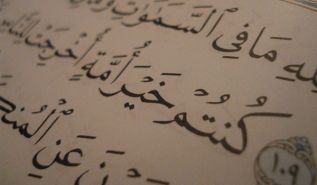 لِلَّهِ مَا فِي السَّمَوَاتِ وَمَا
كُنتُمْ خَيْرَ أُمَّةٍ أُخْرِجَتْ لِلنَّاسِ
نَ عَنِ الْمُنكَ
١٠٩